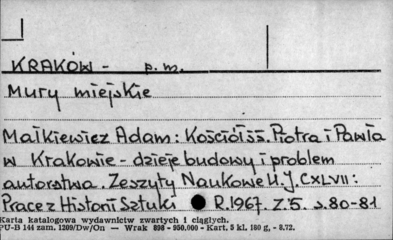 KRAKÓW - p.m.
Mury miejskie
Małkiewicz Adam: Kościół śś. Piotra i Pawła
w Krakowie - dzieje budowy i problem
autorstwa. Zeszyty Naukowe U.J. CXLVII:
Prace z Historii Sztuki R.1967. Z.5. s.80-81
Karta katalogowa wydawnictw zwartych i ciągłych.
PU-B 144 zam. 1209/Dw/On — Wrak 898 - 950.000 - Kart. 5 kl. 180 g. - 8.72.